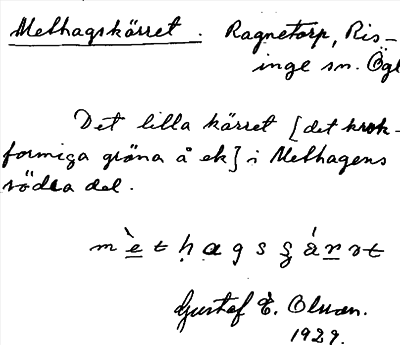 Methagskärret. Ragnetorp, Ris-
inge sn. Ögl
Det lilla kärret [det krok-
formiga gröna å ek] i Methagens
södra del.
mètḥagsʂárrt
Gustaf E. Olsson.
1929.